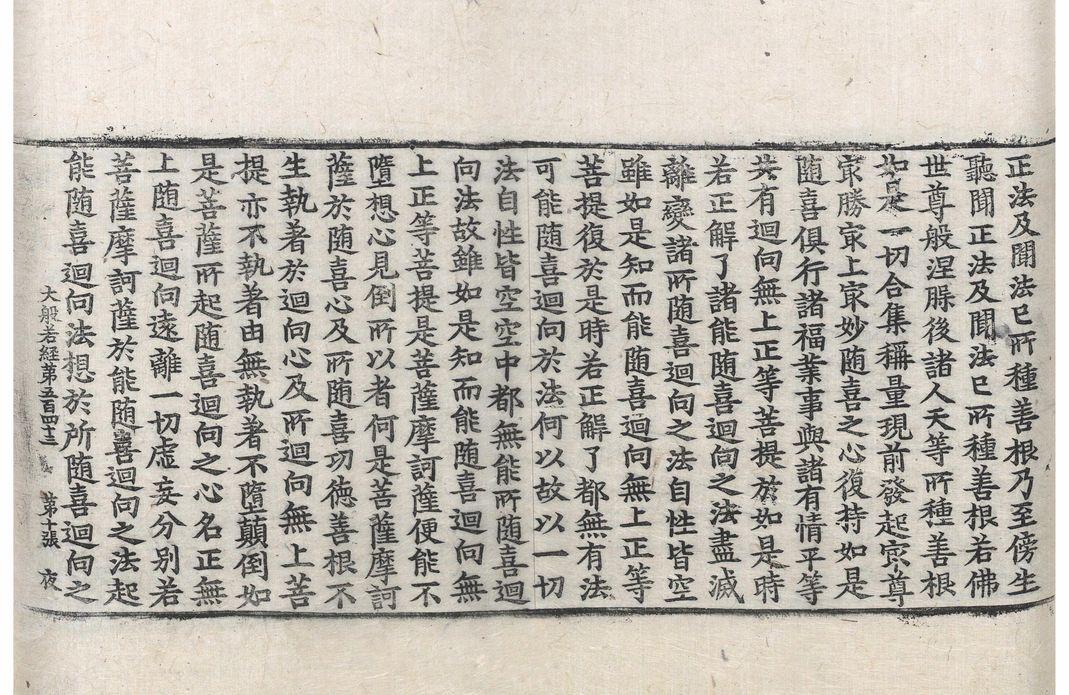 正法及聞法已所種善根乃至傍生
聽聞正法及聞法已所種善根若佛
世尊般涅脵後諸人天等所種善根
如是一切合集稱量現前發起㝡尊
㝡勝㝡上㝡妙随喜之心復持如是
随喜俱行諸福業事與諸有情平等
共有迴向無上正等菩提於如是時
若正解了諸能随喜迴向之法盡滅
離變諸所随喜迴向之法自性皆空
雖如是知而能随喜迴向無上正等
菩提復於是時若正解了都無有法
可能随喜迴向於法何以故以一切
法自性皆空空中都無能所随喜迴
向法故雖如是知而能随喜迴向無
上正等菩提是菩薩摩訶薩便能不
墮想心見倒所以者何是菩薩摩訶
薩於随喜心及所随喜功德善根不
生執著於迴向心及所迴向無上菩
提亦不執著由無執著不墮顛倒如
是菩薩所起随喜迴向之心名正無
上随喜迴向遠離一切虛妄分別若
菩薩摩訶薩於能随喜迴向之法起
能随喜迴向法想於所随喜迴向之
大般若經第五百四十三 第十張 夜